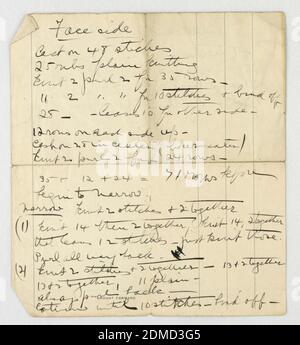 Face side
Cast on 48 stiches
25 ribs plain knitting
Knit 2 purl 2 for 35 rows —
" 2 " " for 10 stitches & bind off
25 — leaves 10 for other side —
12 rows on each side up —
Cast on 25 in center
Knit 2 purl 2 for 24 rows —
35 + 12 + 24 = 71 rows before
begin to narrow.
narrow Knit 2 stitches & 2 together
(1) Knit 14 then 2 together, Knit 14, 2 together
that leaves 12 stitches — just knit those
Purl all way back.
(2) Knit 2 stitches & 2 together — 13 & 2 together
13 & 2 together, 11 plain —
always purl back
Continue until 10 stitches — bind off —
alamy
Image ID: 2DMD3G5
www.alamy.com